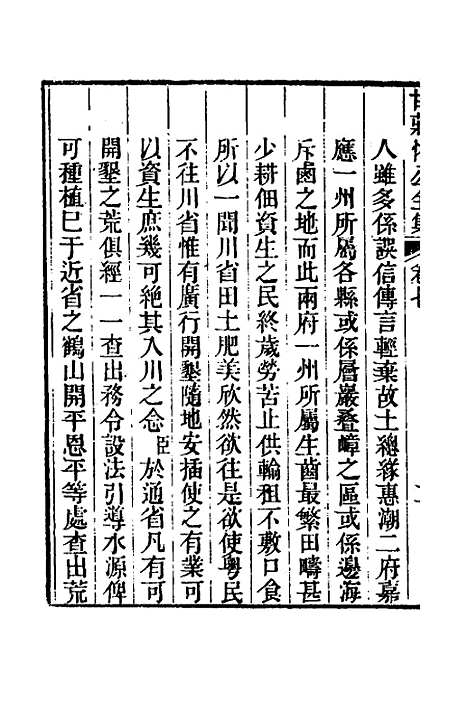 人雖多係誤信傳言輕棄故土總緣惠潮二府嘉
應一州所屬各縣或係層巖疊嶂之區或係邊海
斥鹵之地而此兩府一州所屬生齒最繁田疇甚
少耕佃資生之民終歲勞苦止供輸租不敷口食
所以一聞川省田土肥美欣然欲往是欲使粵民
不往川省惟有廣行開墾隨地安插使之有業可
以資生庶幾可絕其入川之念臣於通省凡有可
開墾之荒俱經一一查出務令設法引導水源俾
可種植已于近省之鶴山開平恩平等處查出荒